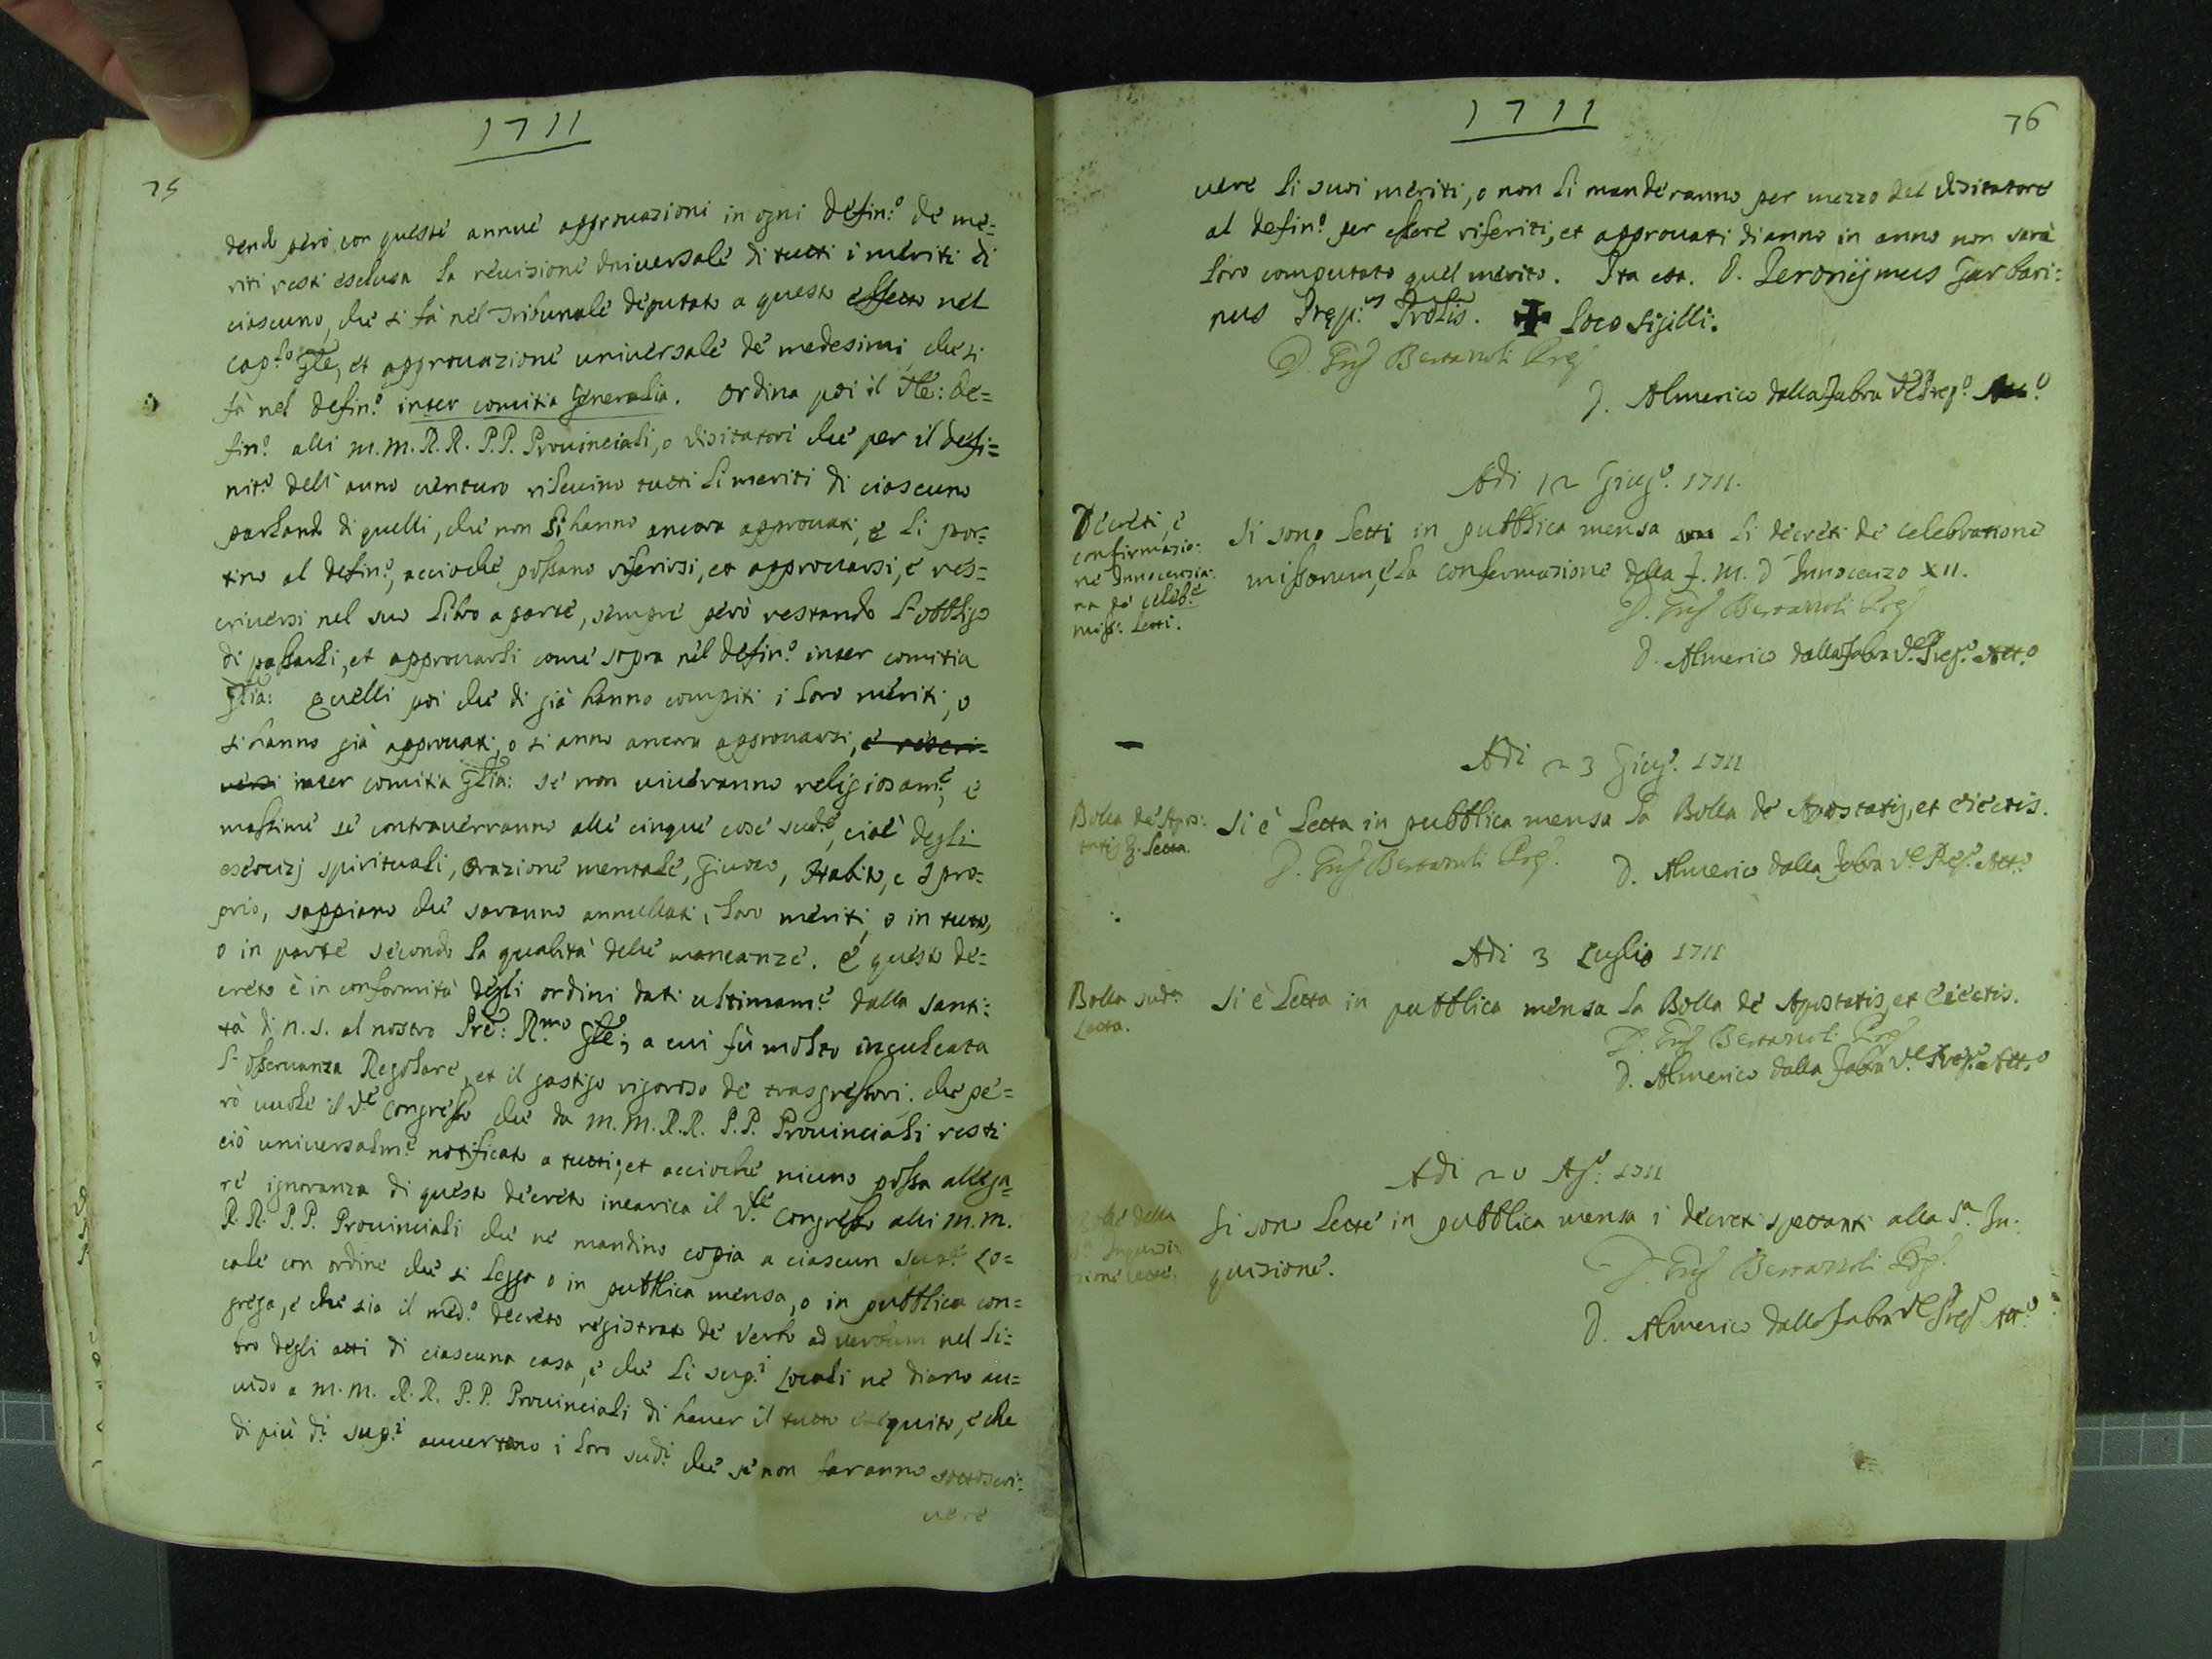 1711
75
dendo però con queste annue approuazioni in ogni Defin.º de me=
riti resti esclusa la reuisione uniuersale di tutti i meriti di
ciascuno, che si fà nel Tribunale deputato a questo effetto nel
Cap.lo Gle, et approuazione uniuersale de medesimi, che si
fà nel Defin.º inter comitia Generalia. Ordina poi il Ve: De=
fin.º alli M.M.R.R. P.P. Prouinciali, o Visitatori che per il Defi=
nit.º dell'anno venturo rileuino tutti li meriti di ciascuno
parlando di quelli, che non li hanno ancora approuati, e li por=
tino al Defin.º, accioche possano riferirsi, et approuarsi, e res=
criuersi nel suo Libro a parte, sempre però restando l'obbligo
di passarli, et approuarli come sopra nel Defin.º inter comitia
Glia: quelli poi che di già hanno compiti i loro meriti, o
si hanno già approuati, o si anno ancora approuarsi, e rescri=
uersi inter comitia Glia: se non uiueranno religiosam.e, e
massime se contrauerranno alle cinque cose sud.e, cioè degli
esercizj spirituali, Orazione mentale, Giuoco, Habito, e Spro=
prio, sappiano che saranno annullati i loro meriti, o in tutto,
o in parte secondo la qualità delle mancanze. E questo de=
creto è in conformità degli ordini dati ultimam.e dalla Santi=
tà di N.S. al nostro Pre: R.mo Gle; a cui fù molto inculcata
l'osseruanza Regolare, et il gastigo rigoroso de trasgressori. Che pe=
rò uuole il V.e Congresso che da M.M.R.R. P.P. Prouinciali resti
ciò uniuersalm.e notificato a tutti; et accioche niuno possa allega=
re ignoranza di questo decreto incarica il V.le Congresso alli M.M.
R.R. P.P. Prouinciali che ne mandino copia a ciascun Sup.e Lo=
cale con ordine che si legga o in pubblica mensa, o in pubblica con=
grega, e che sia il med.º decreto registrato de verbo ad verbum nel Li=
bro degli atti di ciascuna casa, e che li Sup.i Locali ne diano au=
uiso a M.M. R.R. P.P. Prouinciali di hauer il tutto esequito, e che
di più d.i Sup.i auuertano i loro sud.i che se non faranno sottoscri=
uere
1711
76
uere li suoi meriti, o non li manderanno per mezzo del Visitatore
al Defin.º per essere riferiti, et approuati di anno in anno non sarà
loro computato quel merito. Ita est. D. Jeronijmus Garbari=
nus Prep.us Prolis. ✠ Loco Sigilli.
D. Bertazzoli Prep
D. Almerico dalla Fabra V.e Prep.º Att.º
Adi 12 Giug.º 1711.
Decreti, e
confirmazio=
ne Innocenzia=
na de celeb.e
miss: Letti.
Si sono Letti in pubblica mensa li decreti de celebratione
missarum, e la confermazione della f. m. d'Innocenzo XII.
D. Bertazzoli Prep
D. Almerico dalla Fabra V.e Prep.º Att.º
Adi 23 Giug.º 1711
Bolla de Apos=
tatis Letta.
Si è Letta in pubblica mensa la Bolla de Apostatis, et Eiectis.
D. Bertazzoli Prep.
D. Almerico dalla Fabra V.e Prep.º Att.º
Adi 3 Luglio 1711
Bolla sud.a
Letta.
Si è Letta in pubblica mensa la Bolla de Apostatis, et Eiectis.
D. Bertazzoli Prep
D. Almerico dalla Fabra V.e Prep.º Att.º
Adi 20 Ag.º 1711
della
S.a Inquisi=
zione Lette.
Si sono Lette in pubblica mensa i decreti spettanti alla S.a In=
quisizione.
D. Bertazzoli Prep.
D. Almerico dalla Fabra V.e Prep.º Att.º